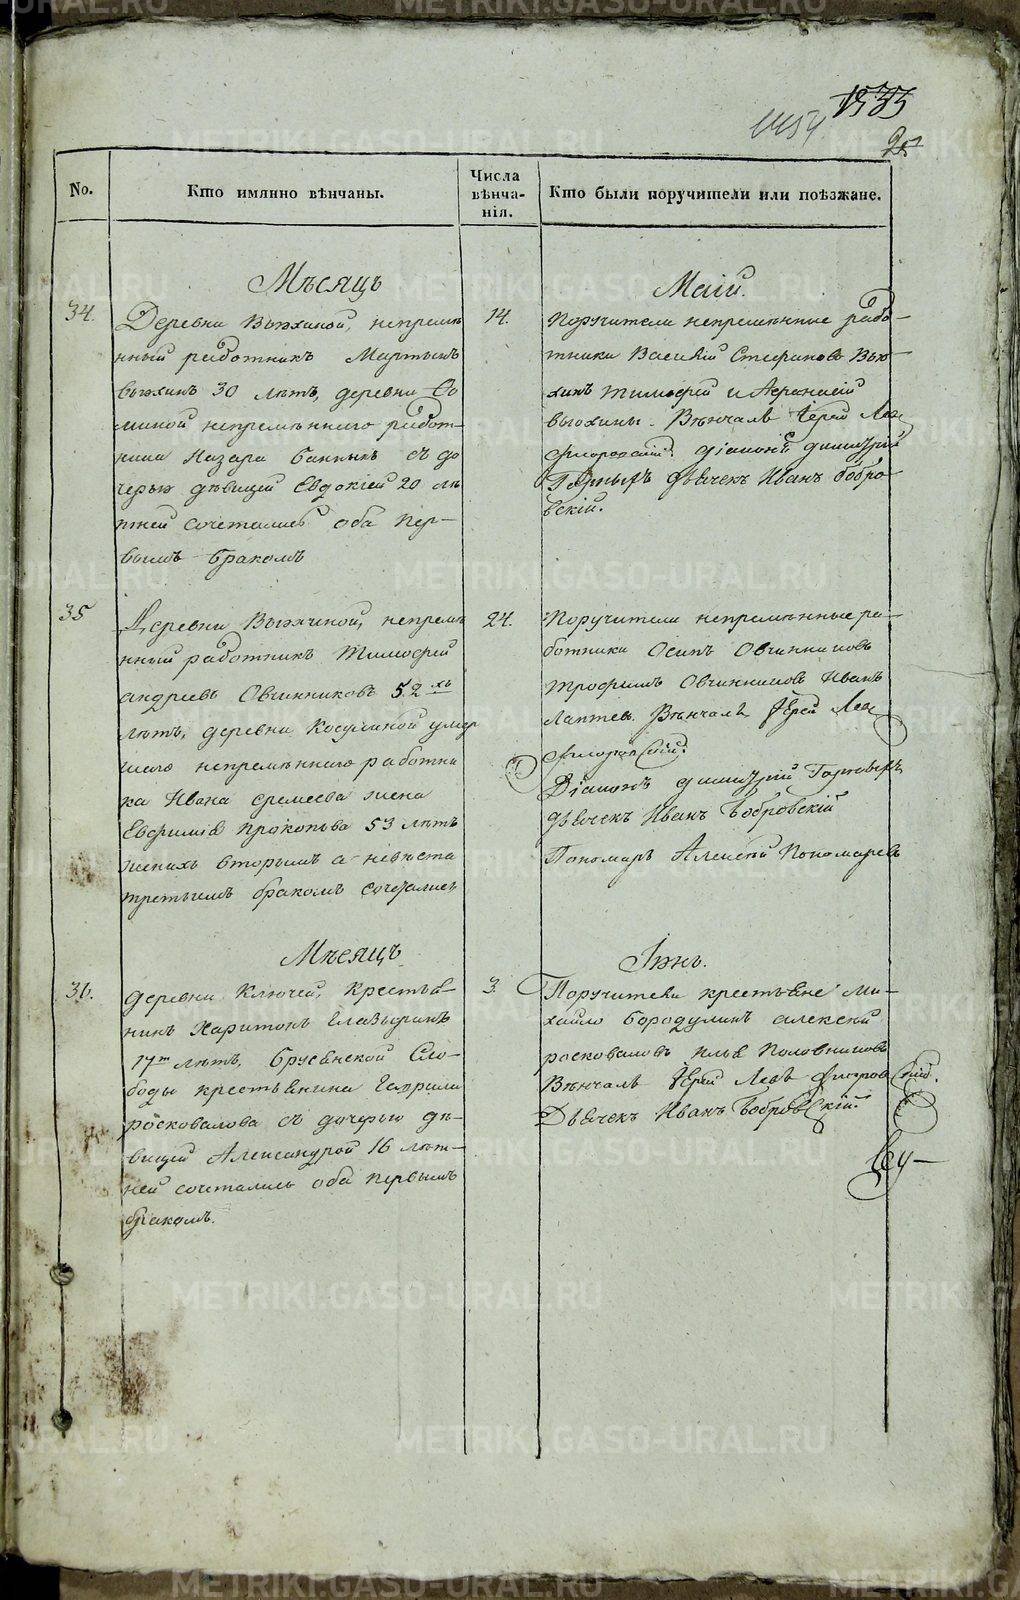 1533
1454
25
No.
Кто имянно вѣнчаны.
Числа
вѣнча-
нія.
Кто были поручители или поѣзжане.
Мѣсяцъ
Маій.
34.
Деревни Вьюхиной, непремѣ
нный работникъ Мартынъ
вьюхинъ 30 лѣтъ, деревни
миной непремѣннаго работ-
ника Назара съ до
черью дѣвицей Евдокіей 20 лѣ
тней сочетались оба пер-
вымъ бракомъ
14.
Поручители непремѣнные рабо-
тники Василій Стефановъ Вью-
хинъ тимофей и Афанасій
вьюхины. Вѣнчалъ Іерей Лев
Флоровскій. діаконъ димитрій
Горныхъ дьячекъ Иванъ бобро-
вскій.
35
Деревни Вьюхиной, непремѣ
нный работникъ Тимофей
андріевъ Овчинниковъ 52хъ
лѣтъ, деревни Косулиной умер
шаго непремѣннаго работни
ка Ивана еремеева жена
Евфимія прокопьва 53 лѣтъ
женихъ вторымъ а невѣста
третьимъ бракомъ сочетались
24.
Поручители непремѣнные ра-
ботники Осипъ Овчинниковъ
трофимъ Овчинниковъ Иванъ
Лаптев. Вѣнчалъ Іерей Лев
Флоровскій.
Діаконъ димитрій
дьячекъ Иванъ Бобровскій
Пономарь Алексій Пономаревъ
Мѣсяцъ
Іюнь.
36.
деревни Ключей, крестья-
нинъ Харитонъ
17ти лѣтъ, брусянской Сло-
боды крестьянина Гаврила
росковалова съ дочерью дѣ-
вицей Александрой 16 лѣт-
ней сочетались оба первымъ
бракомъ.
3.
Поручители крестьяне Ми-
хайло бородулинъ алексей
росковаловъ илья Половниковъ
Вѣнчалъ Іерей Левъ Флоровскій.
Дьячекъ Иванъ Бобровскій.
METRIKI.GASO-URAL.RU